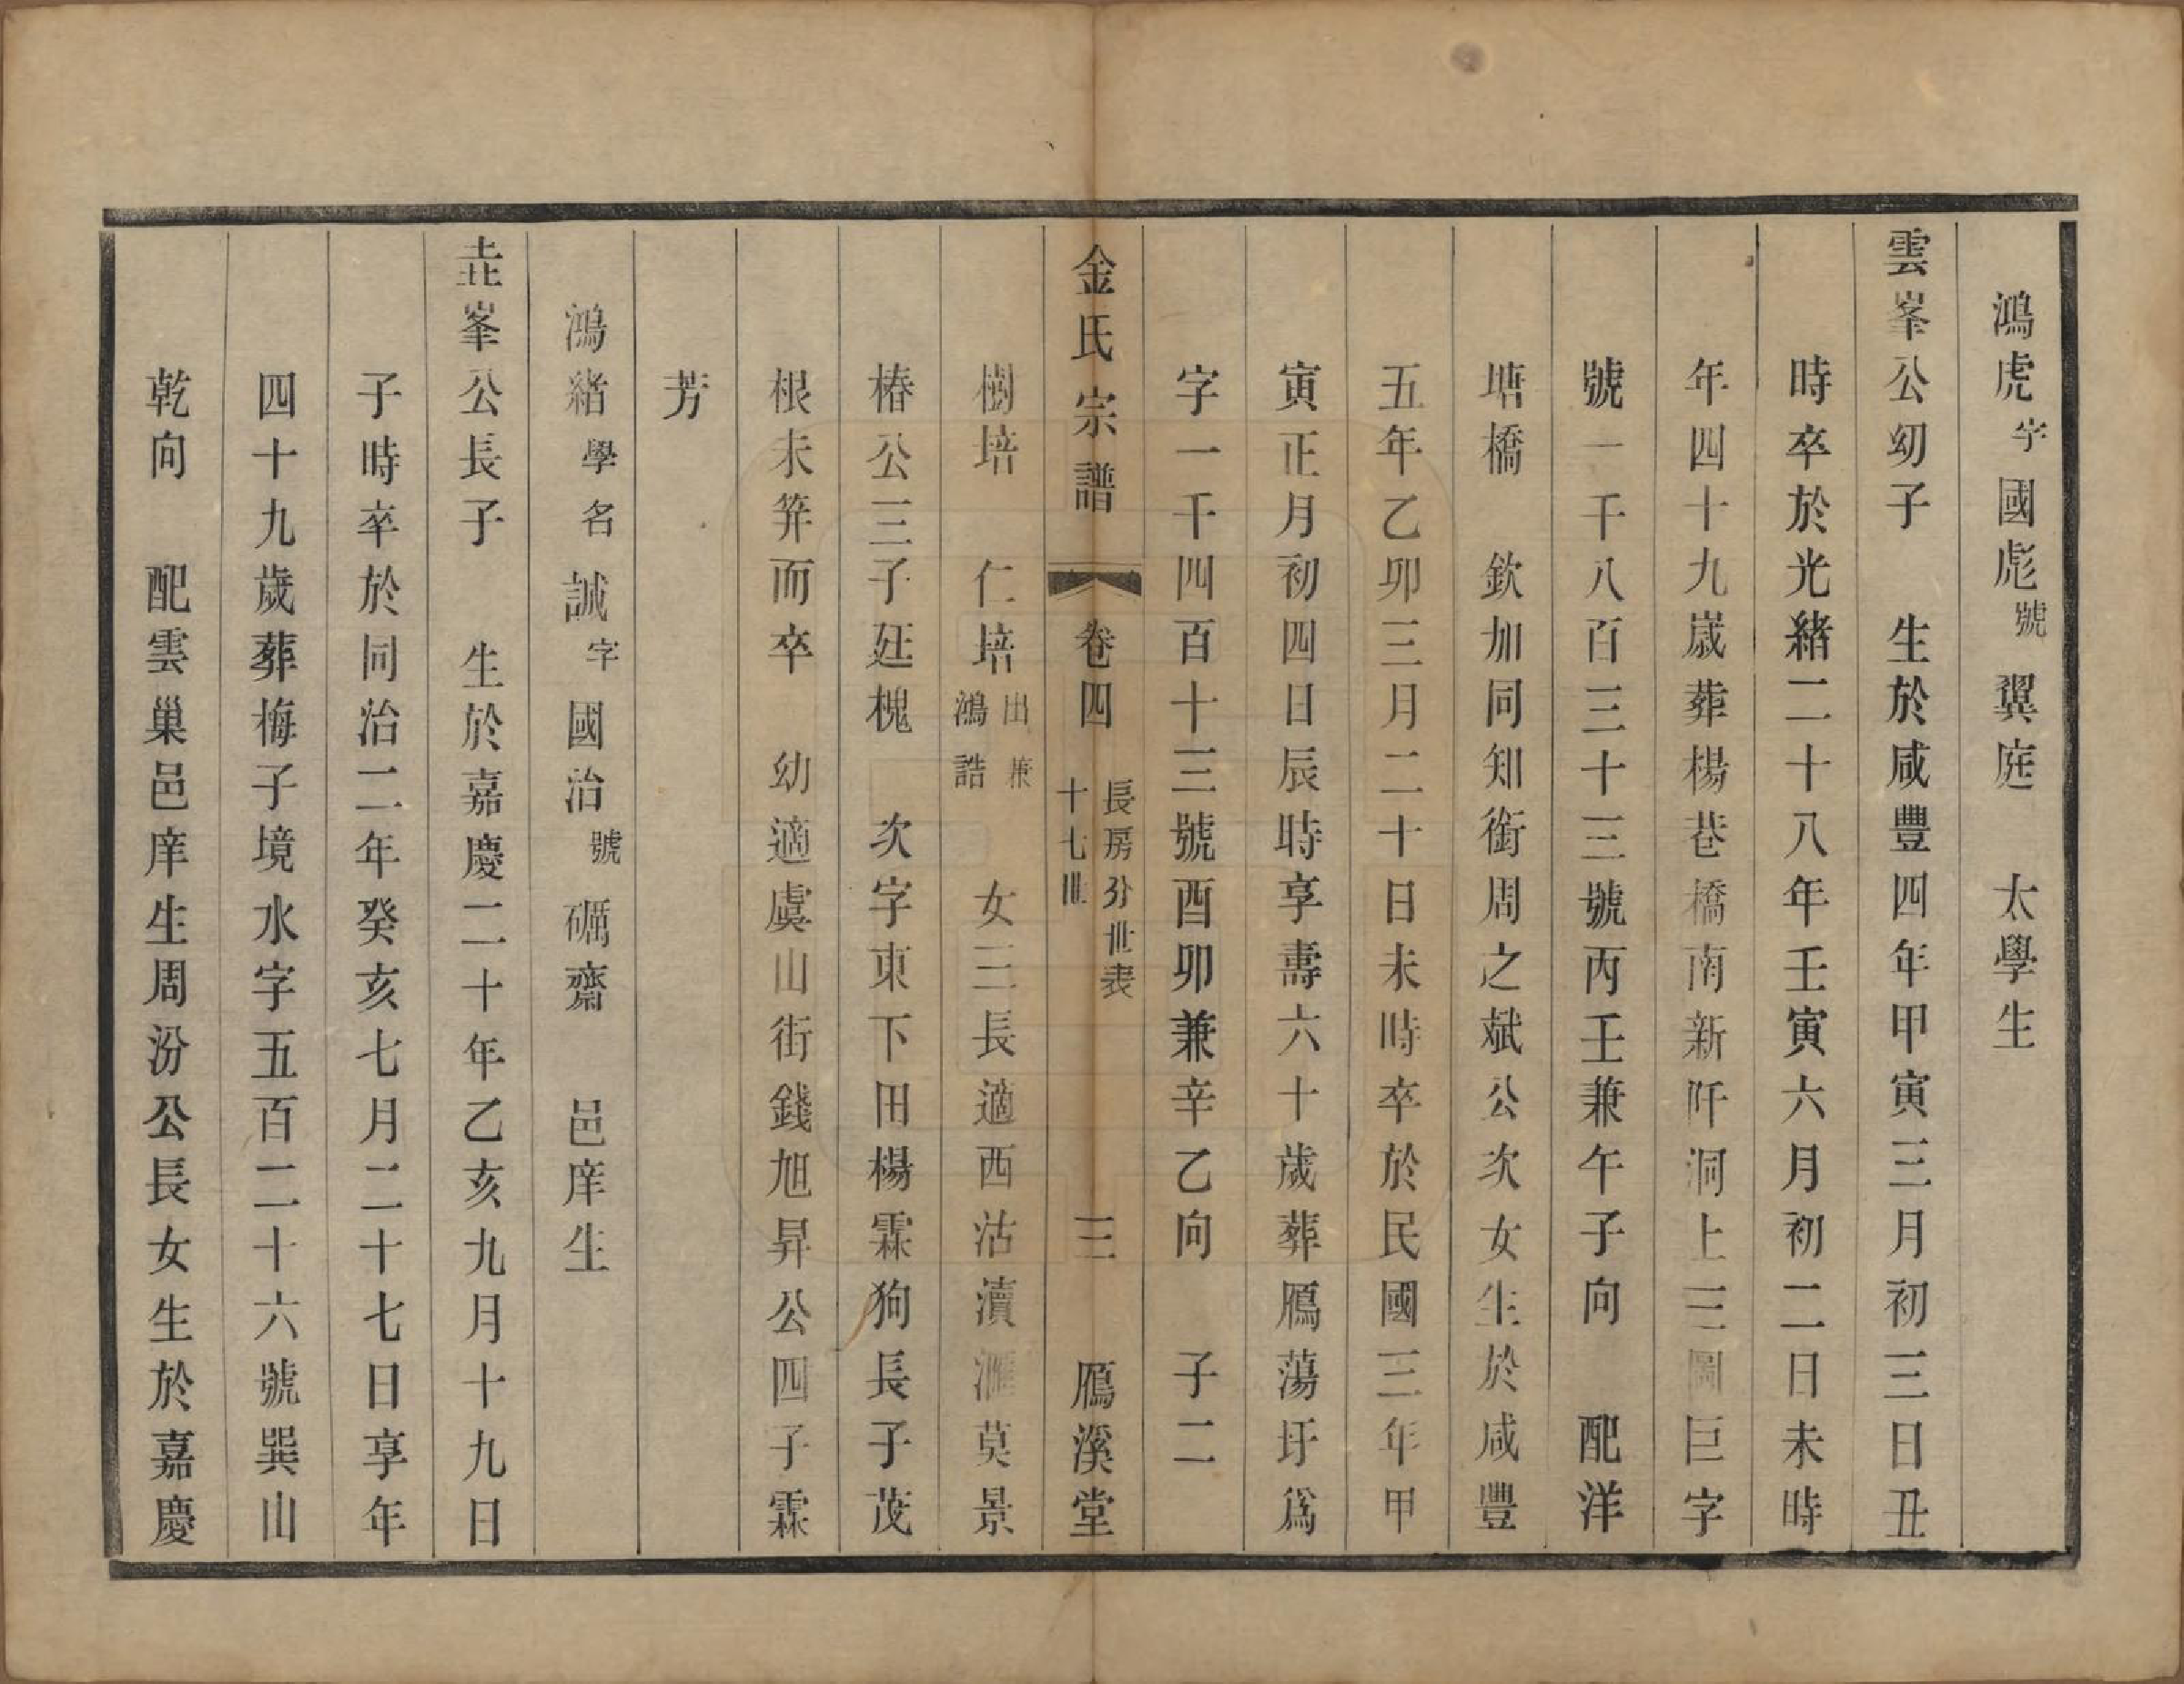 鴻虎字國彪號翼庭　太學生
雲峯公幼子　生於咸豐四年甲寅三月初三日丑
時卒於光緒二十八年壬寅六月初二日未時
年四十九歲葬楊巷橋南新阡洞上三圖巨字
號一千八百三十三號丙壬兼午子向　配洋
塘橋　欽加同知銜周之斌公次女生於咸豐
五年乙卯三月二十日未時卒於民國三年甲
寅正月初四日辰時享壽六十歲葬鴈蕩圩爲
字一千四百十三號酉卯兼辛乙向　子二
金氏宗譜　卷四　長房分世表　十七世　三　鴈溪堂
樹培　仁培出兼鴻誥　女三長適西沽瀆滙莫景
椿公三子廷槐　次字東下田楊霖狗長子茂
根未笄而卒　幼適虞山街錢旭昇公四子霖
芳
鴻緒學名誠字國治號礪齋　邑庠生
壵峯公長子　生於嘉慶二十年乙亥九月十九日
子時卒於同治二年癸亥七月二十七日享年
四十九歲葬梅子境水字五百二十六號巽山
乾向　配雲巢邑庠生周汾公長女生於嘉慶